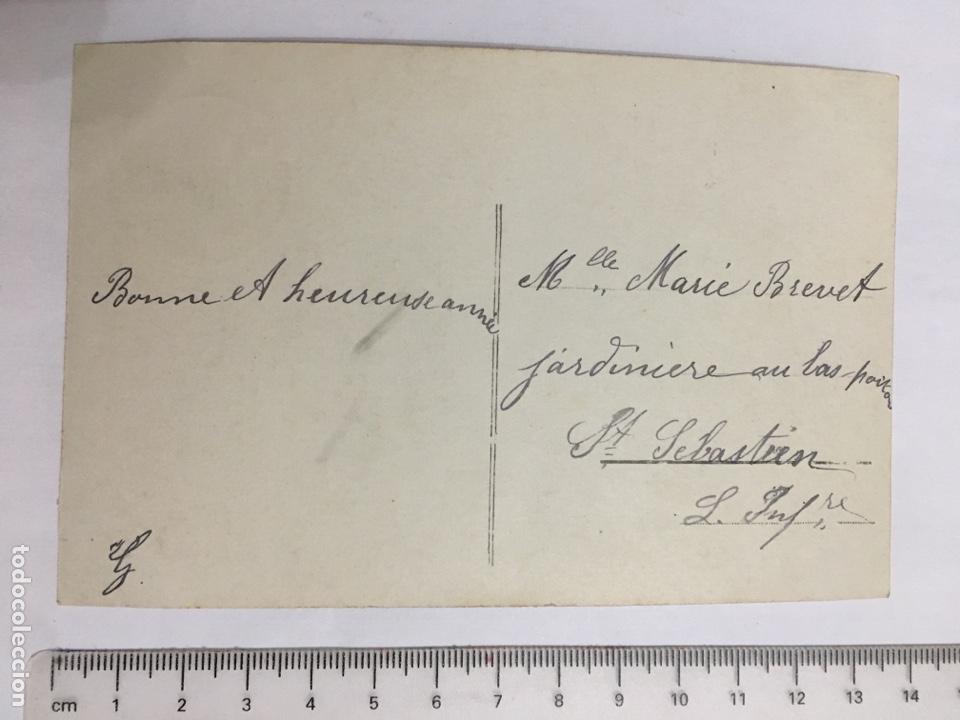 Bonne et heureuse année
Mlle Marie Brevet
jardiniere au bas
St Sebastien
L. Infre
todocoleccion
cm 1 2 3 4 5 6 7 8 9 10 11 12 13 14